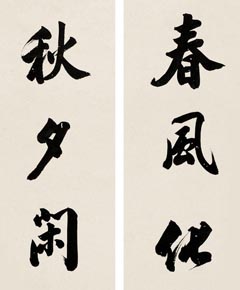 春風化
秋夕閑